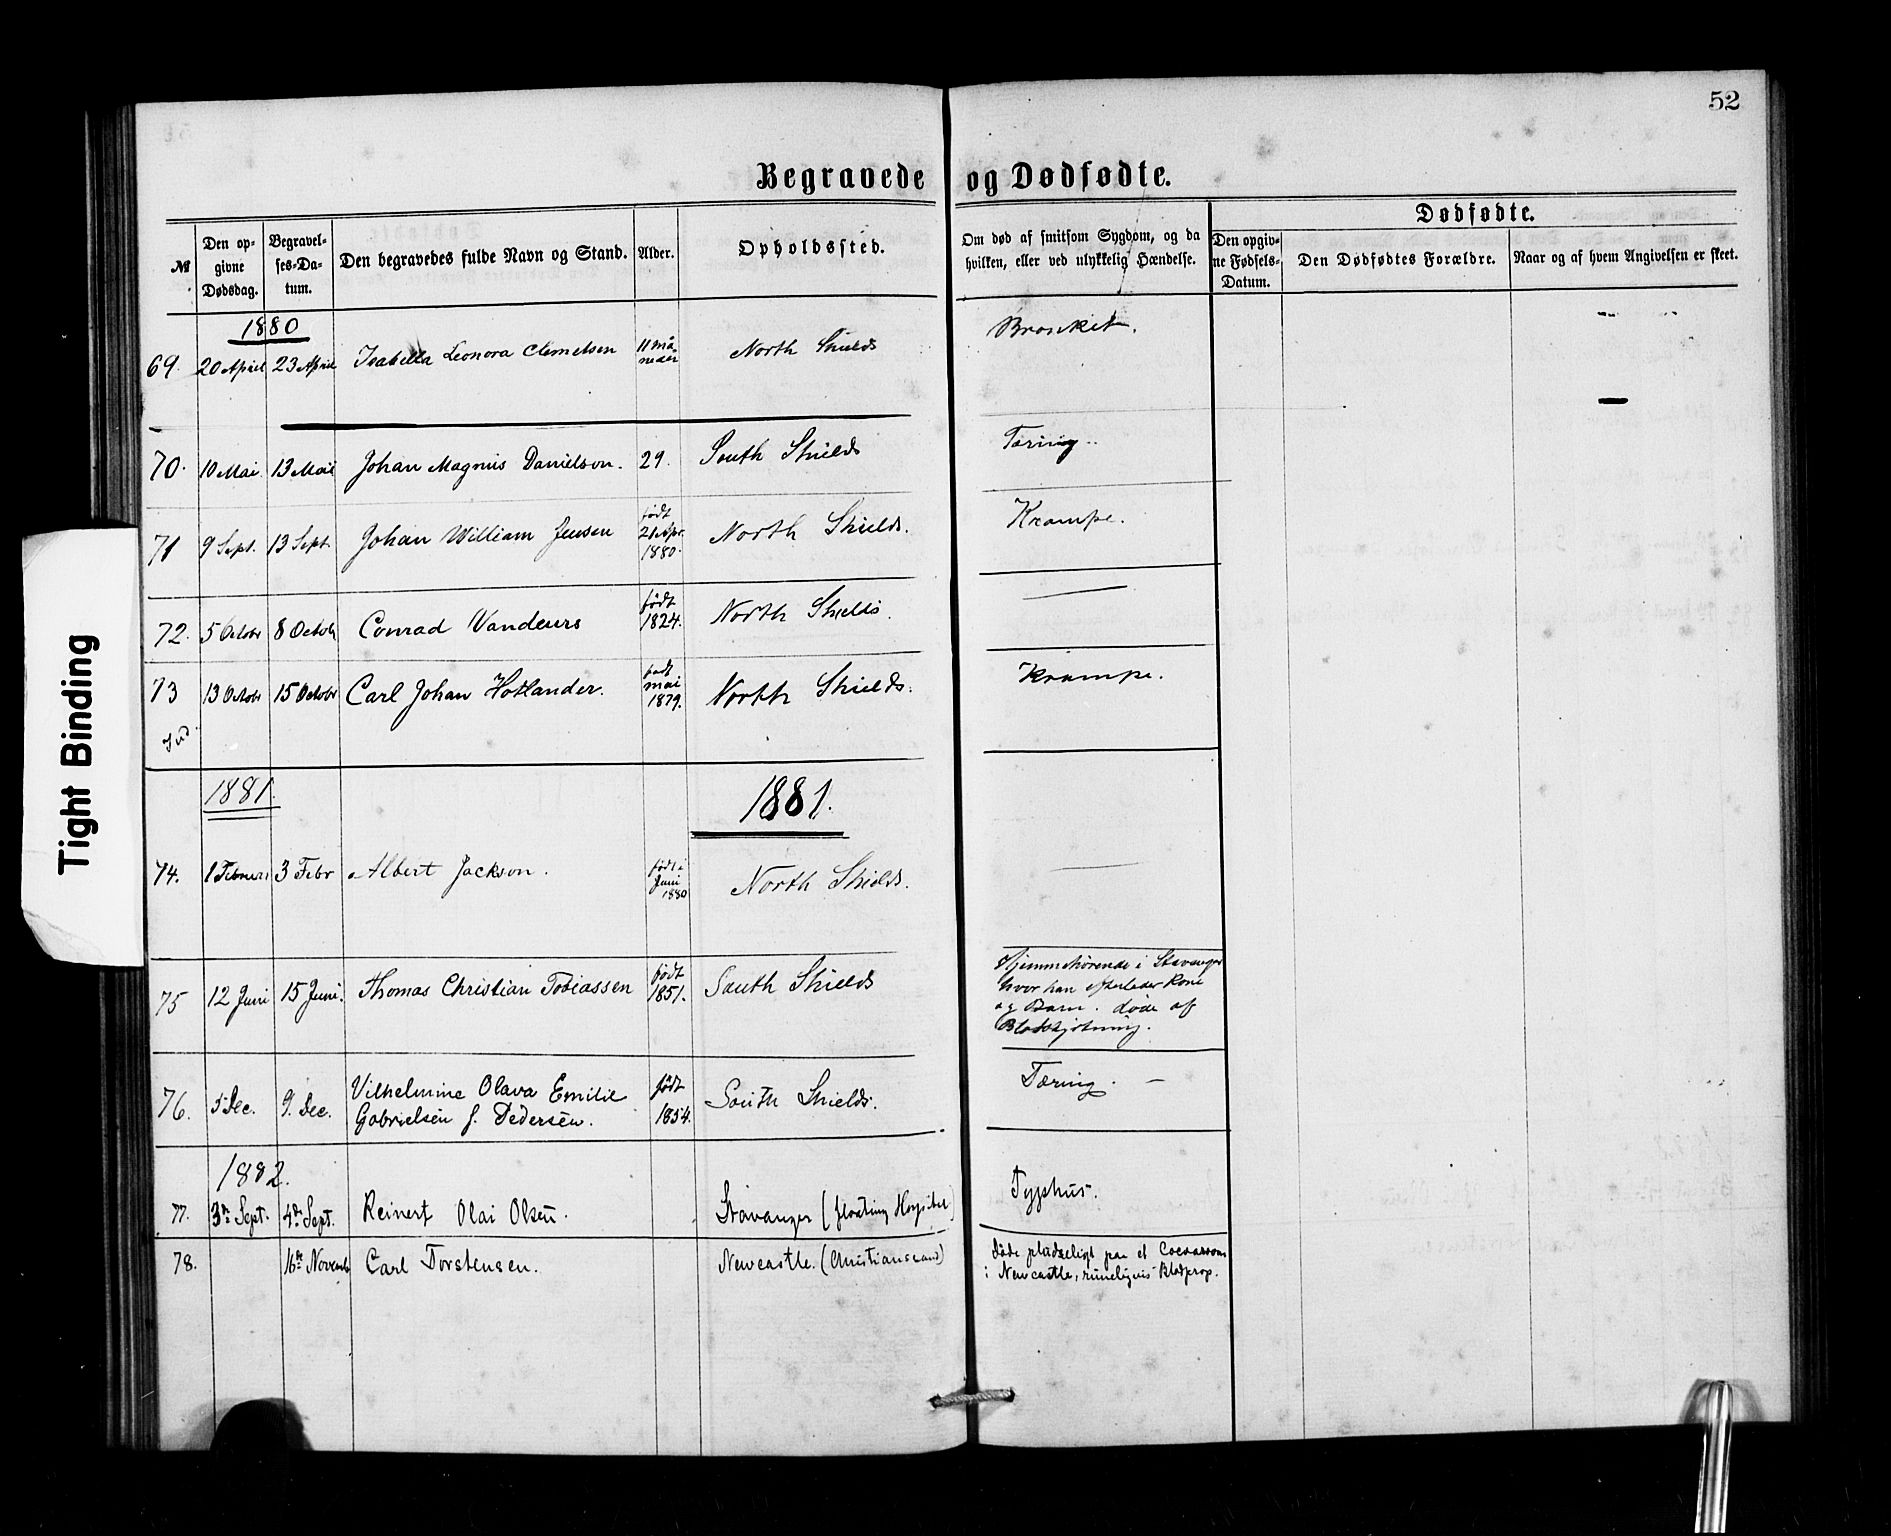 52
Begravede og Dødfødte.
№
Den op-
givne
Dødsdag.
Begravel-
ses-Da-
tum.
Den begravedes fulde Navn og Stand.
Alder.
Opholdssted.
Om død af smitsom Sygdom, og da
hvilken, eller ved ulykkelig Hændelse.
Dødfødte.
Den opgiv-
ne Fødsels-
Datum.
Den Dødfødtes Forældre.
Naar og af hvem Angivelsen er skeet.
1880
69. 20 April 23 April Isabella Leonora Clemetsen 11 må-
neder North Shields Bronkit.
70. 10 Mai. 13 Mai Johan Magnus Danielson. 29. South Shields Tæring.
71 9 Sept. 13 Sept Johan William Jensen født
21 Apr.
1880. North Shields. Krampe.
72. 5 Octobr 8 Octobr Conrad Vandeurs født
1824. North Shields.
73 13 Octobr 15 Octobr Carl Johan Hotlander. født
mai
1879. North Shields. Krampe.
1881. 1881.
74. 1 Februar 3 Febr Albert Jackson. født i
Juni
1880 North Shields.
75 12 Juni 15 Juni. Thomas Christian Tobiassen født
1851. South Shields Hjemmehörende i Stavanger
hvor han efterlader Kone
og Barn. døde af
Blodstyrtning.
76. 5 Dec. 9. Dec. Vilhelmine Olava Emilie
Gabrielsen f. Pedersen. født
1854. South Shields. Tæring. —
1882.
77. 3die Sept. 4de Sept. Reinert Olai Olsen. Stavanger (floating Hospital) Typhus.
78. 16de Novemb Carl Torstensen. Newcastle. (Christianssand) Døde pludseligt paa et
i Newcastle, rimeligvis Blodprop.
Tight Binding